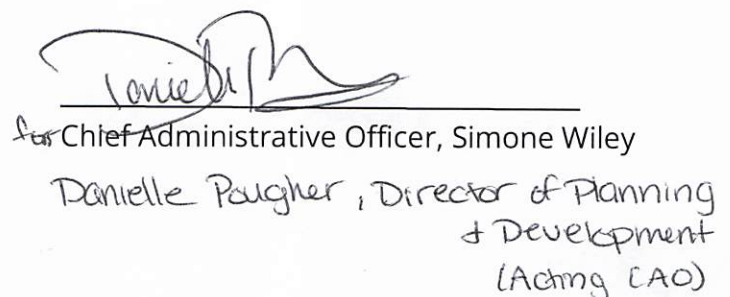 Danielle P
for Chief Administrative Officer, Simone Wiley
Danielle Pougher, Director of Planning
& Development
(Acting CAO)